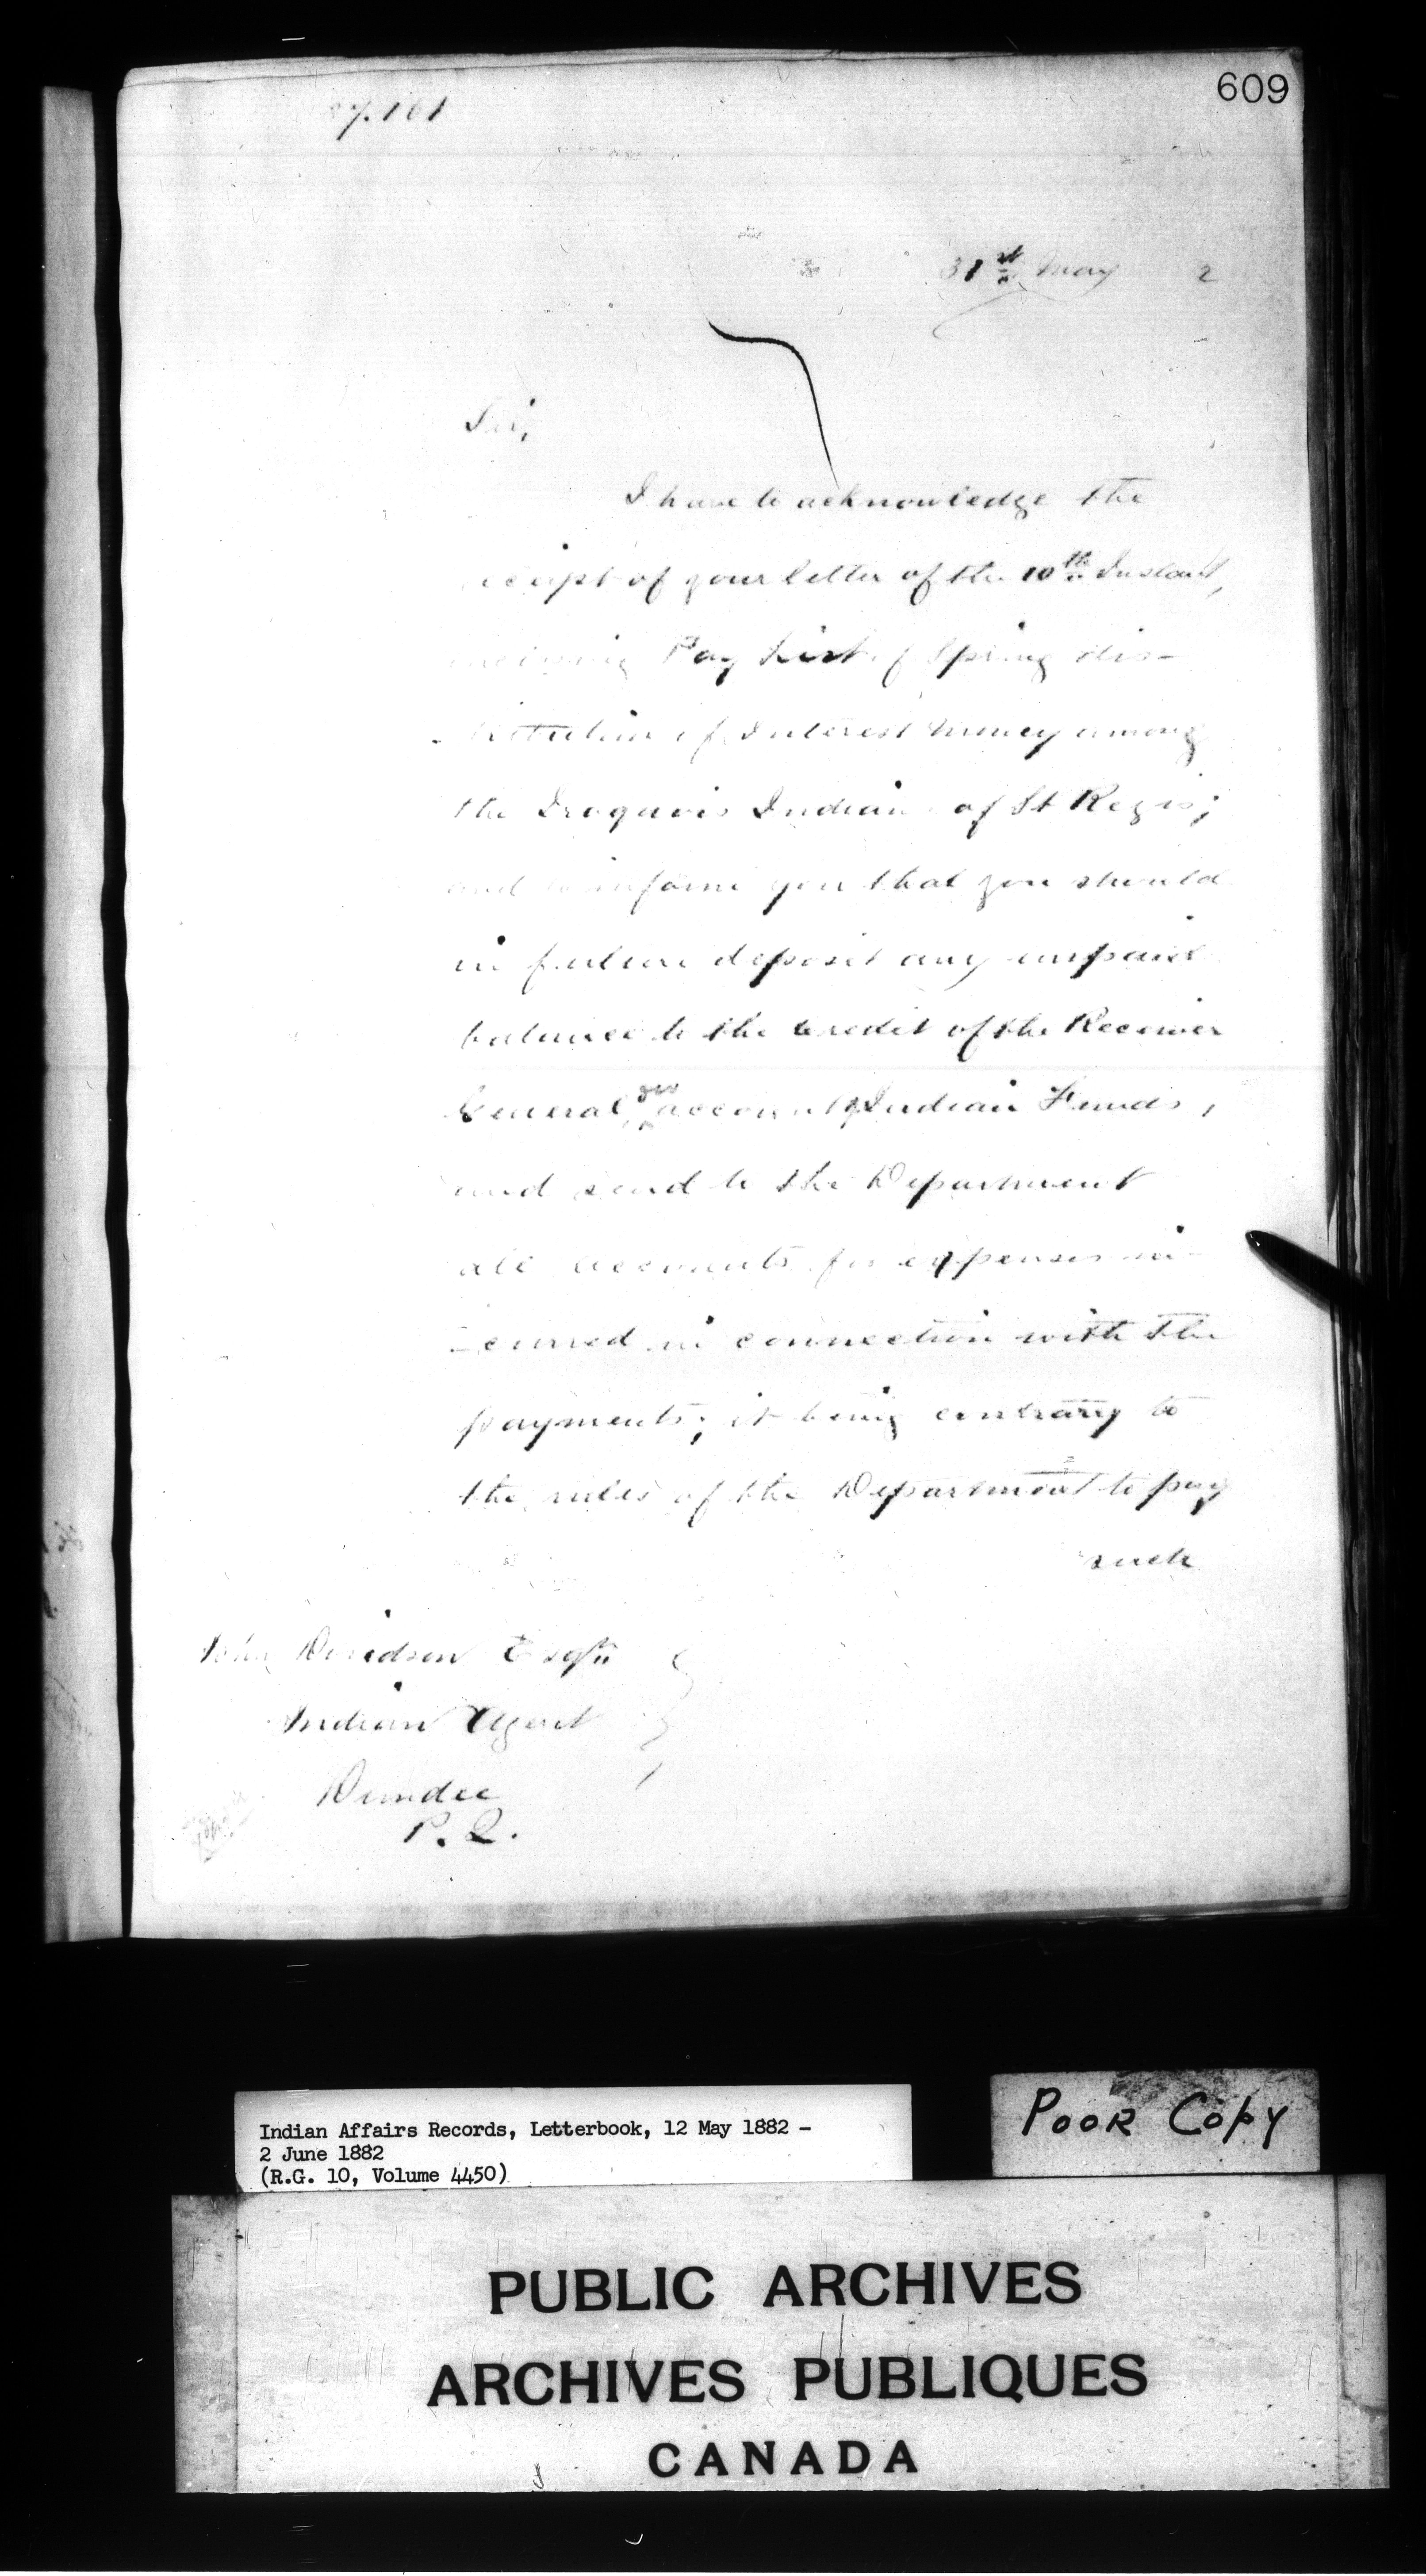 609
31st May 2
Sir,
I have to acknowledge the
receipt of your letter of the 10th Instant,
inclosing Pay List of Spring dis-
-tribution of Interest money among
the Iroquois Indians of St Regis;
and to inform you that you should
in future deposit any unpaid
balance to the credit of the Receiver
General, on account of Indian Funds,
and send to the Department
all accounts for expenses in-
-curred in connection with the
payments; it being contrary to
the rules of the Department to pay
such
John Davidson Esqre
Indian Agent
Dundee
P. Q.
Indian Affairs Records, Letterbook, 12 May 1882 -
2 June 1882
(R.G. 10, Volume 4450)
POOR COPY
PUBLIC ARCHIVES
ARCHIVES PUBLIQUES
CANADA